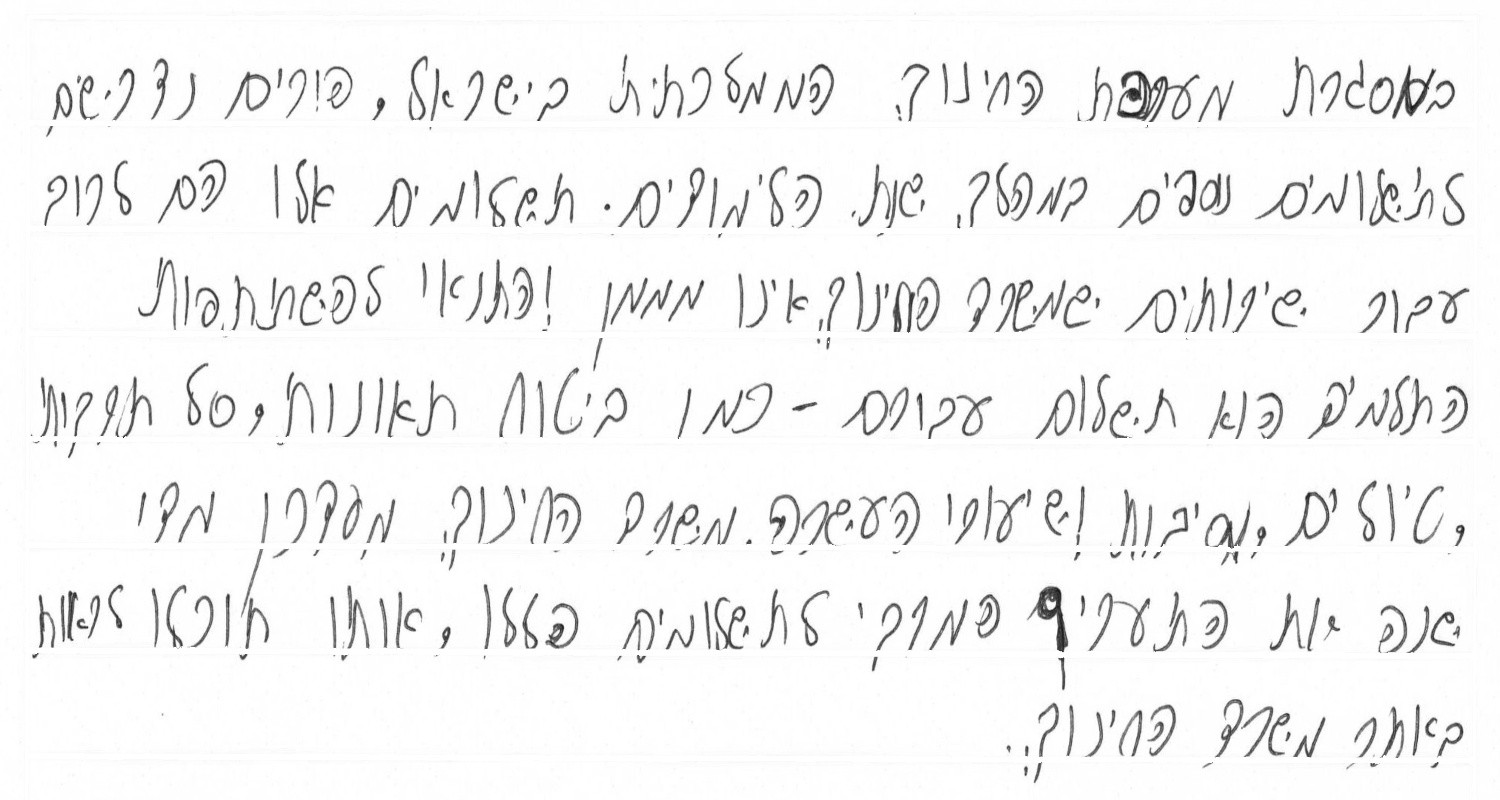 במסגרת מערכת החינוך הממלכתית בישראל, הורים נדרשים
לתשלומים נוספים במהלך שנת הלימודים. תשלומים אלו הם לרוב
עבור שירותים שמשרד החינוך אינו מממן והתנאי להשתתפות
התלמים הוא תשלום עבורם - כמו ביטוח תאונות, סל תרבות
, טיולים, מסיבות ושיעורי העשרה. משרד החינוך מעדכן מדי
שנה את התעריף המרבי לתשלומים הללו, אותו תוכלו לראות
באתר משרד החינוך.